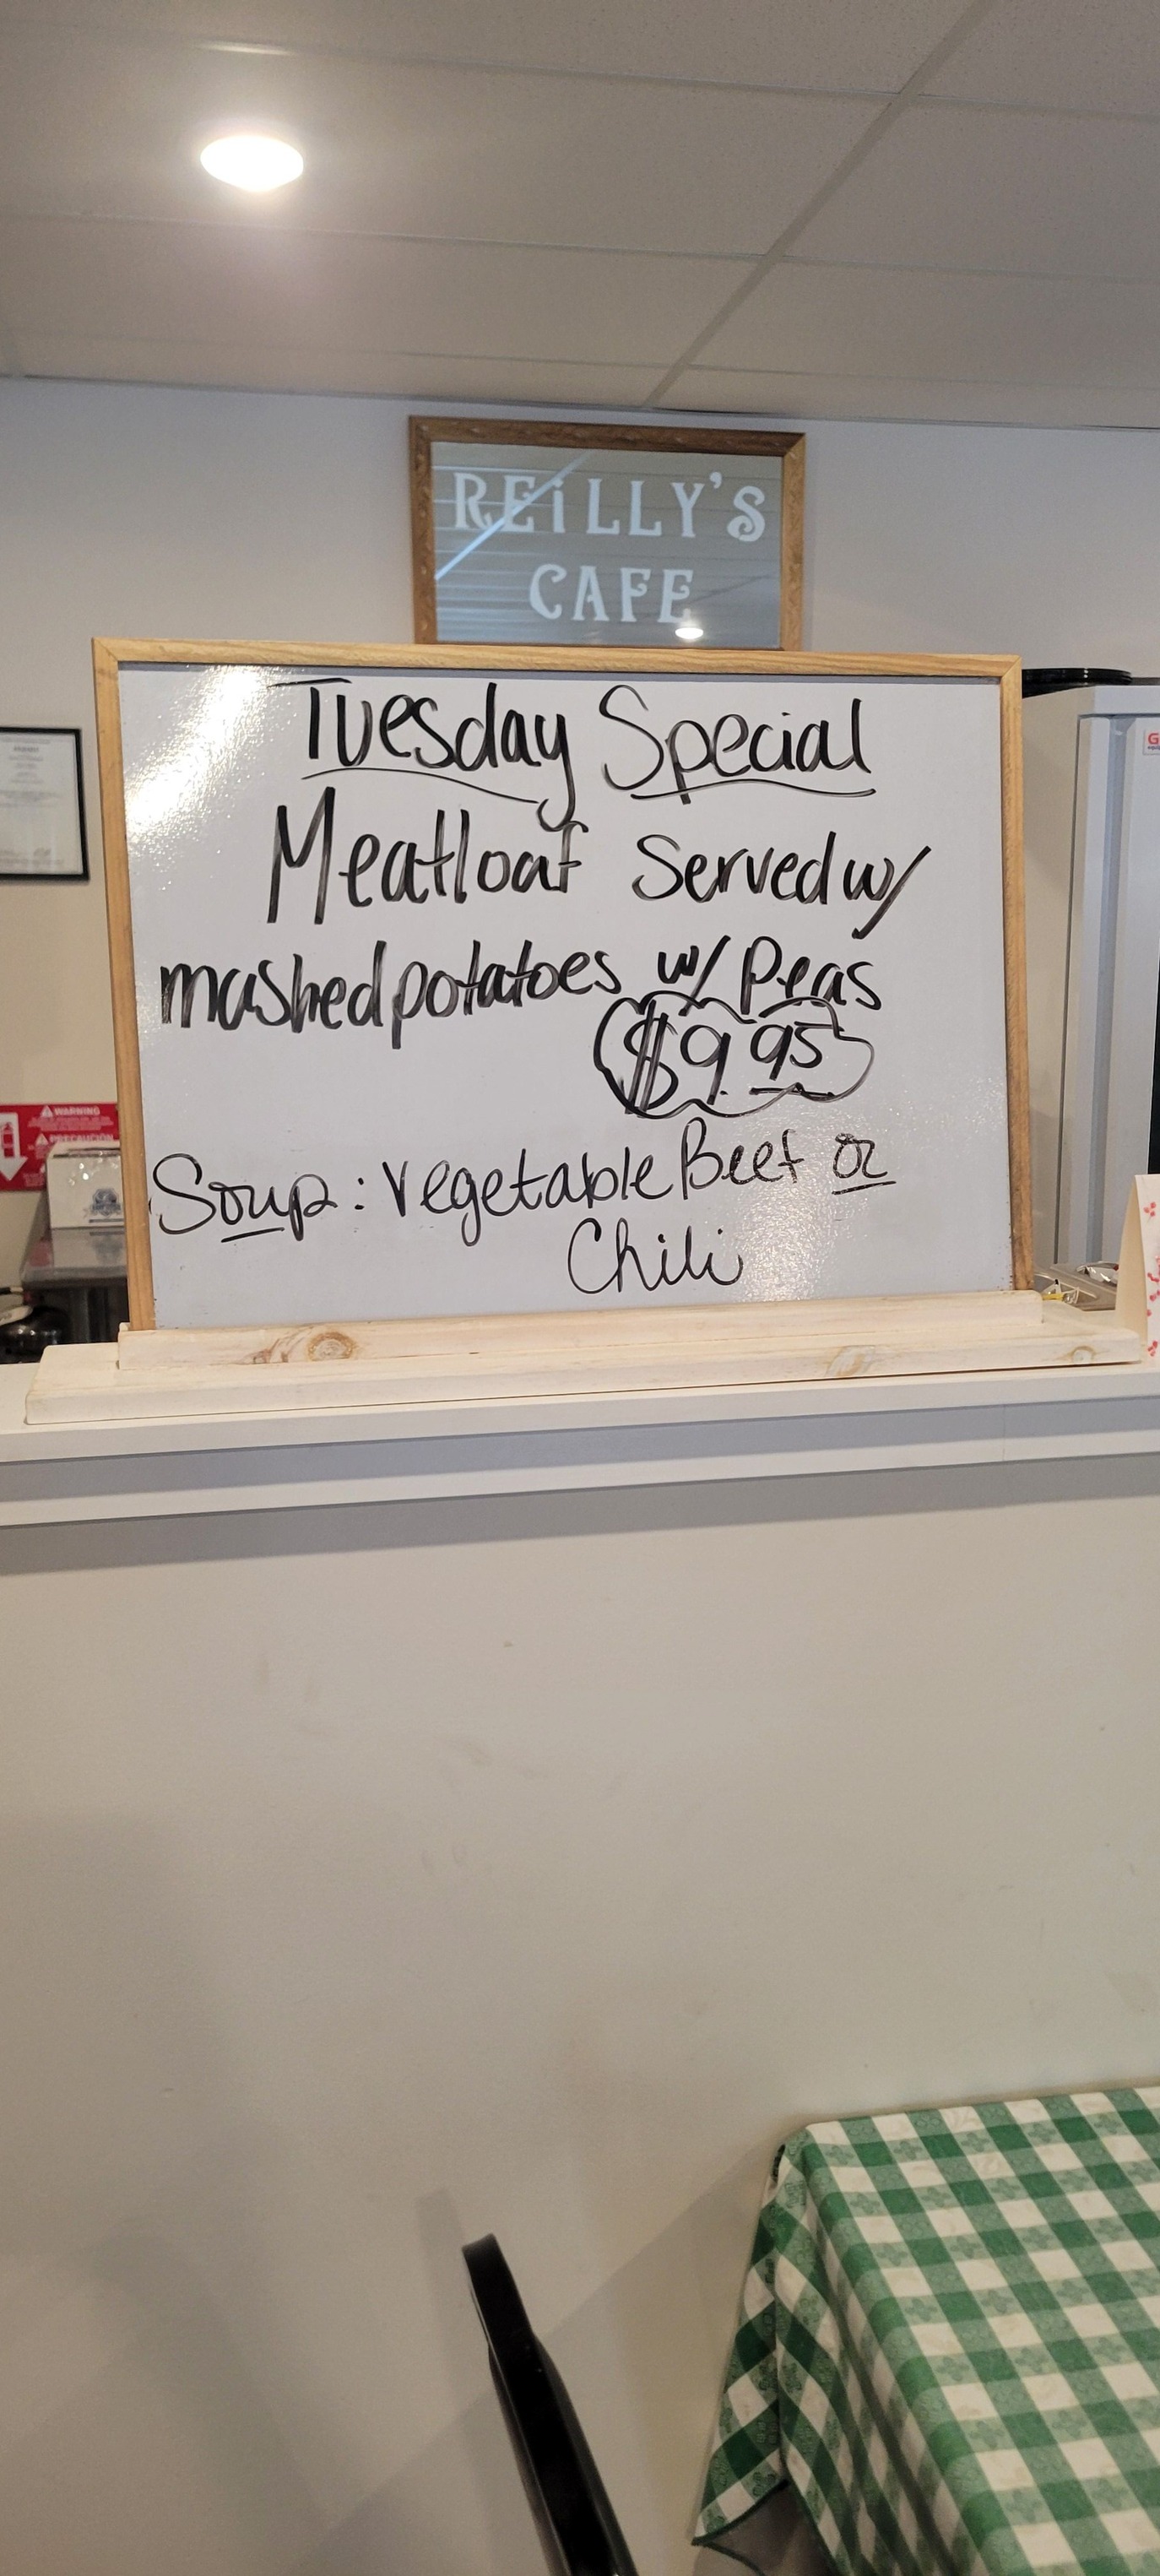 REiLLY'S
CAFE
Tuesday Special
Meatloaf Served w/
mashed potatoes w/ Peas
$9.95
Soup: Vegetable Beef or
Chili
WARNING
PRECAUCIÓN